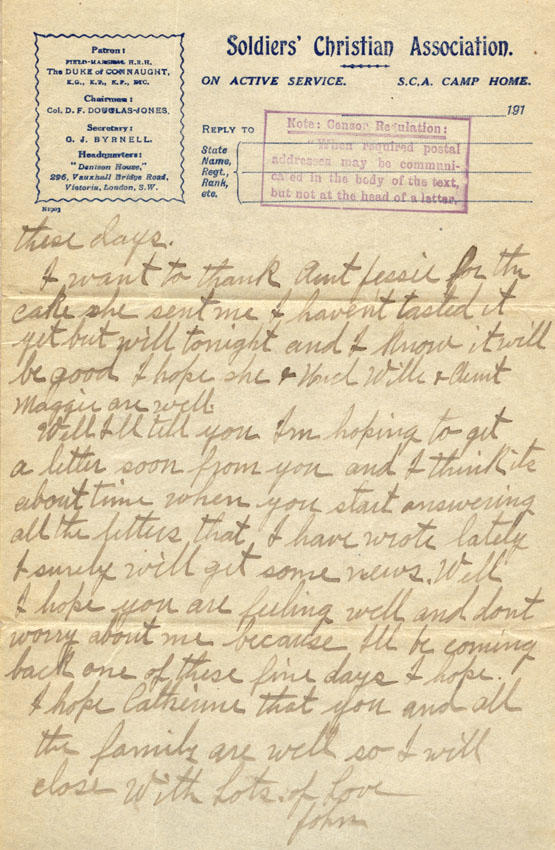 Patron:
FIELD-MARSHAL H.R.H.
The DUKE of CONNAUGHT,
K.G., K.T., K.P., ETC.
Chairman:
Col. D. F. DOUGLAS-JONES.
Secretary:
G. J. BYRNELL.
Headquarters:
"Denison House,"
296, Vauxhall Bridge Road,
Victoria, London, S.W.
Soldiers' Christian Association.
ON ACTIVE SERVICE. S.C.A. CAMP HOME.
191
REPLY TO
State
Name,
Regt.,
Rank,
etc.
Note: Censor Regulation:
"When required postal
addresses may be communi-
cated in the body of the text,
but not at the head of a letter.
these days.
I want to thank Aunt Jessie for the
cake she sent me I haven't tasted it
yet but will tonight and I know it will
be good I hope she & Uncl Wille & Aunt
Maggie are well.
Well I'll tell you Im hoping to get
a letter soon from you and I think its
about time when you start answering
all the letters that I have wrote lately
I surely will get some news. Well
I hope you are feeling well and dont
worry about me because I'll be coming
back one of these fine days I hope.
I hope Catherine that you and all
the family are well so I will
close With Lots of Love
John